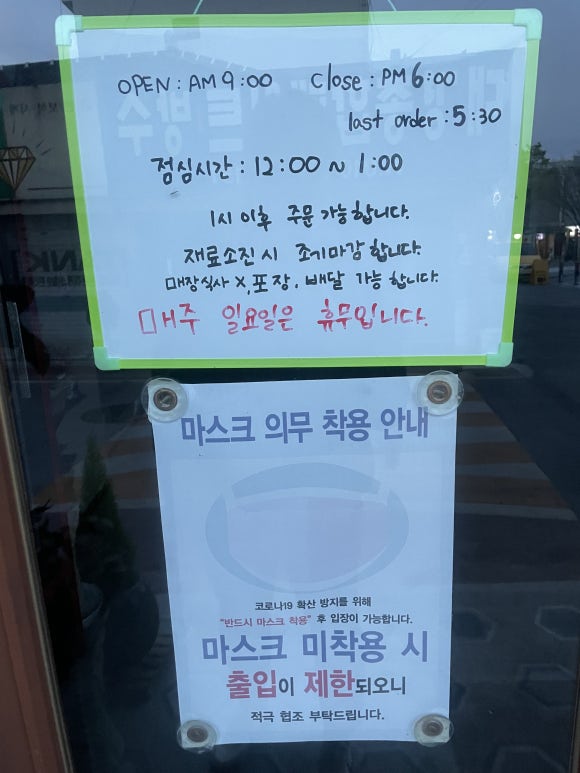 OPEN : AM 9:00 Close : PM 6:00
last order : 5:30
점심시간 : 12:00 ~ 1:00
1시 이후 주문 가능합니다.
재료소진 시 조기마감 합니다.
매장식사 X, 포장, 배달 가능합니다.
매주 일요일은 휴무입니다.
마스크 의무 착용 안내
코로나19 확산 방지를 위해
"반드시 마스크 착용" 후 입장이 가능합니다.
마스크 미착용 시
출입이 제한되오니
적극 협조 부탁드립니다.